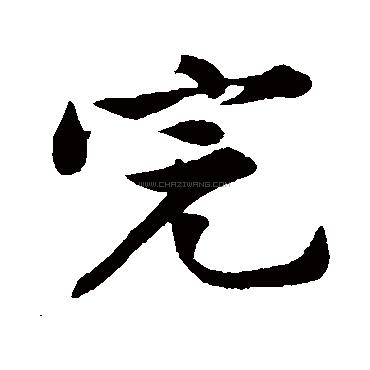 完
WWW.CHAZIWANG.COM